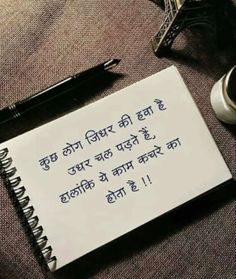 कुछ लोग जिधर की हवा है
उधर चल पड़ते हैं,
हालांकि ये काम कचरे का
होता है !!